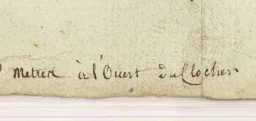 metres à l'Ouest du Clocher